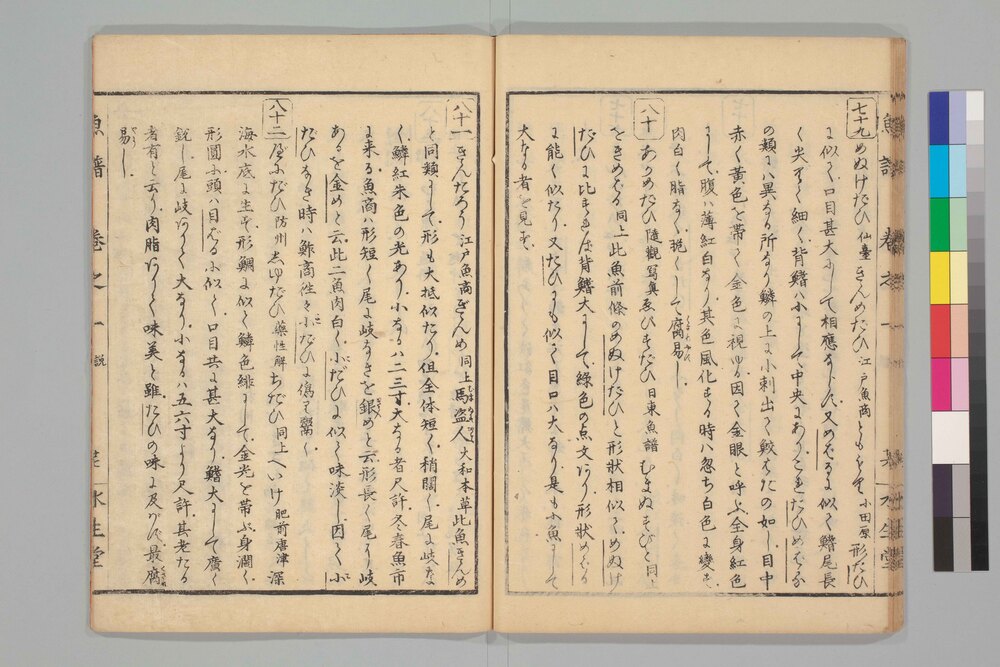 七十九 めぬけたひ 仙臺 きんめたひ 江戸魚商 ともをそ 小田原 形たひ
に似て口目甚大にして相應ならず又めばるに似て鰭尾長
く尖りて細く背鰭ハ小にして中央にありこれたひめばる
の類にハ異なる所なり鱗の上に小刺出て鮫はたの如し目中
赤く黄色を帶て金色に視ゆる因て金眼と呼ぶ全身紅色
にして腹ハ薄紅白なり其色風化する時ハ忽ち白色に變ず
肉白く脂なく脱くして腐易し
八十 あかめたひ 隨觀寫真 ゑひすたひ 日東魚譜 むまぬすびと 同上
をきめばる 同上 此魚前條のめぬけたひと形状相似てめぬけ
たひに比すれば背鰭大にして綠色の点文ありて形状めばる
に能く似たり又たひにも似て目口ハ大なり是も小魚にして
大なる者を見ず
八十一 きんたろう 江戸魚商 ぎんめ 同上 馬盗人 大和本草 此魚きんめ
と同類にして形も大抵似たり但全体短く稍闊く尾に岐な
く鱗紅朱色の光あり小なるハ二三寸大なる者尺許冬春魚市
に来る魚商ハ形短く尾に岐なきを銀めと云形長く尾に岐
あるを金めと云此二魚肉白く小だひに似て味淡し因て小
だひなき時ハ鮓商往々小だひに偽て鬻く
八十二 びやうぶだひ 防州 しゆたひ 藥性解 ちたひ 同上 へいけ 肥前唐津 深
海水底に生ず形鯛に似て鱗色緋にして金光を帶ぶ身濶く
形圓ふ頭ハ目ばるに似て口目共に甚大なり鰭大にして廣く
鋭し尾に岐ありて大なり小なるハ五六寸より尺許其老たる
者有と云り肉脂ありて味美と雖たひの味に及ばず最腐
易し
魚譜 巻之一 説
水生堂